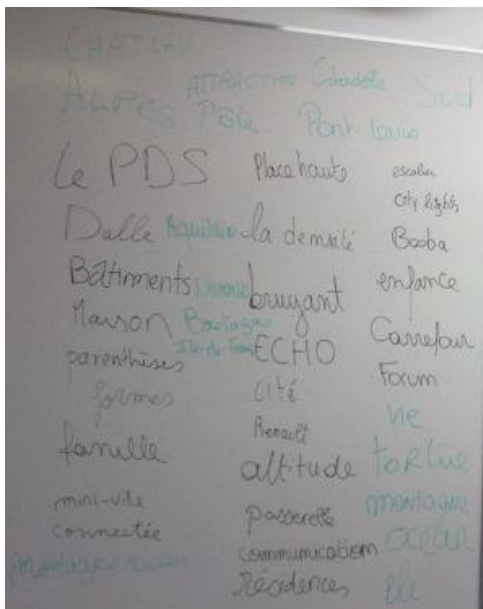 CHATEAU
ATTRACTION Citadelle Sud
ALPES Pôle Pont-
Le PDS
Place hauts
escalier
City lights
Dalle Aquitaine la densité
Booba
Bâtiments
bruyant
enfance
Maison Boulogne
Carrefour
parenthèses Ile-de-France ECHO
Forum
formes
cité
famille
Renault
vie
altitude
tortue
mini-ville
connectée
passerelle
montagne
communication
océan
montagne
Résidences
île